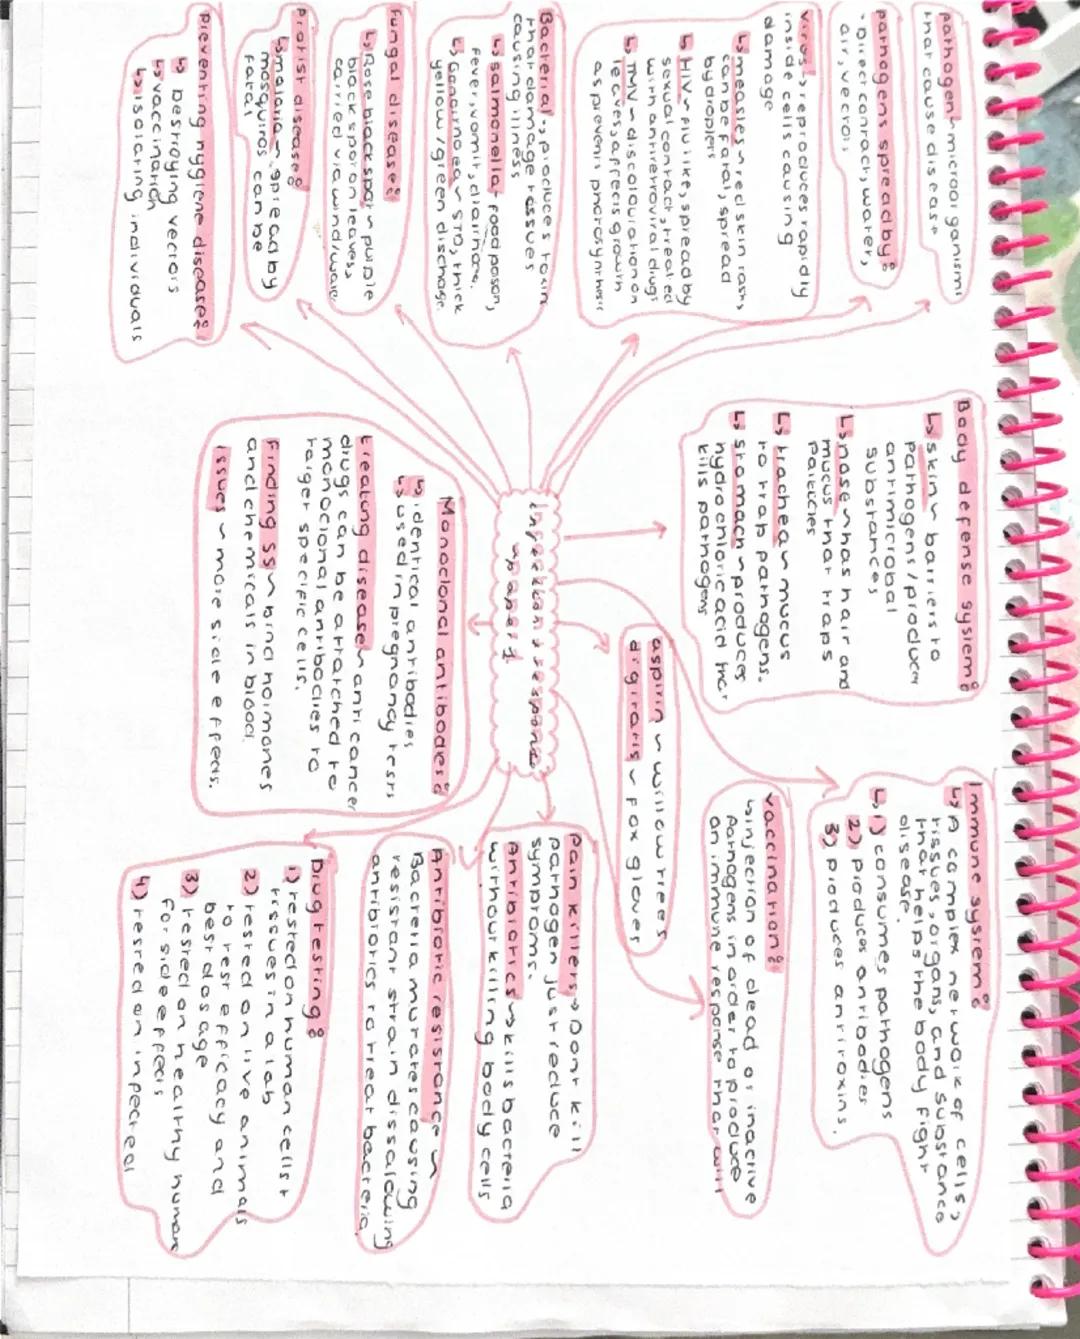 pathogen ~ microorganisms
that cause disease
pathogens spread by:
• Direct contact, water,
air, vectors
virus → reproduces rapidly
inside cells causing
damage
↳ measles ~ red skin rash,
can be fatal, spread
by droplets
↳ HIV ~ flu like, spread by
sexual contact, treated
with antiretroviral drugs
↳ TMV ~ discolouration on
leaves, affects growth
as prevents photosynthesis
Bacterial → produces toxin
that damage tissues
causing illness
↳ salmonella ~ food poison,
fever, vomit, diarrhoea.
↳ Gonorrhoea ~ STD, thick
yellow/green discharge
Fungal disease:
↳ Rose black spot ~ purple
black spot on leaves,
carried via wind/water
Protist disease:
↳ malaria ~ spread by
mosquitos can be
fatal
Preventing hygiene disease:
↳ Destroying vectors
↳ vaccination
↳ isolating individuals
Body defense system:
↳ skin ~ barriers to
pathogens/produces
antimicrobial
substances
↳ nose ~ has hair and
mucus that traps
particles
↳ trachea ~ mucus
to trap pathogens.
↳ stomach ~ produces
hydrochloric acid that
kills pathogens
Infection & response
~ paper 1
aspirin ~ willow trees
digitalis ~ fox gloves
Monoclonal antibodies:
↳ identical antibodies
↳ used in pregnancy tests
treating disease ~ anti cancer
drugs can be attached to
monoclonal antibodies to
target specific cells.
Finding ss ~ bind hormones
and chemicals in blood.
issues ~ more side effects.
Immune system:
↳ A complex network of cells,
tissues, organs, and substance
that helps the body fight
disease.
↳ 1) consumes pathogens
2) produces antibodies
3) produces antitoxins.
vaccination:
↳ injection of dead or inactive
pathogens in order to produce
an immune response that will
Pain killers → Dont kill
pathogen just reduce
symptoms.
Antibiotics → kills bacteria
without killing body cells
Antibiotic resistance ~
Bacteria mutates causing
resistant strain dissalowing
antibiotics to treat bacteria.
Drug testing:
1) tested on human cells +
tissues in a lab
2) tested on live animals
to test efficacy and
best dosage
3) tested on healthy humans
for side effects
4) tested on infected